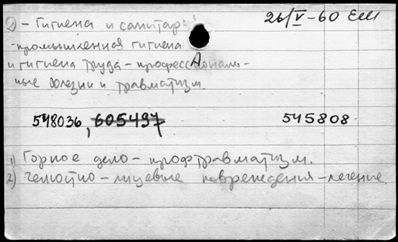 26/V-60
– Гигиена и санитария
-промышленная гигиена
и гигиена труда-профессиональ-
ные болезни и травматизм.
548036, 605437 545808
1) Горное дело – профтравматизм.
2) Челюстно-лицевые повреждения-лечение.